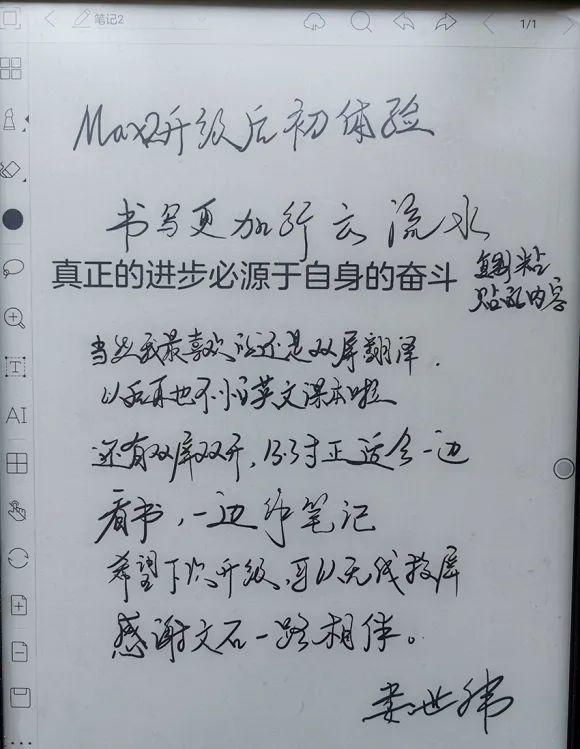 笔记2
1/1
Max2升级后初体验
书写更加行云流水
真正的进步必源于自身的奋斗
复制粘
贴的内容
当然我最喜欢的还是双屏翻译.
以后再也不怕英文课本啦
还有双屏双开,13.3寸正适合一边
看书,一边作笔记
希望下次升级,可以无线投屏
感谢文石一路相伴。
T
AI